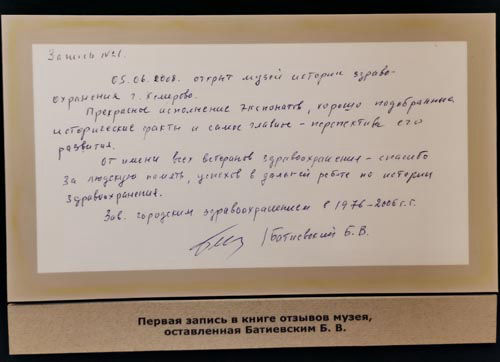 Запись №1.
05.06.2008. открыт музей истории здраво-
охранения г. Кемерово.
Прекрасное исполнение экспонатов, хорошо подобранные
исторические факты и самое главное – перспектива его
развития.
От имени всех ветеранов здравоохранения – спасибо
за людскую память, успехов в дальней работе по истории
здравоохранения.
Зав. городским здравоохранением с 1976–2006 г.г.
/Батиевский Б. В.
Первая запись в книге отзывов музея,
оставленная Батиевским Б. В.